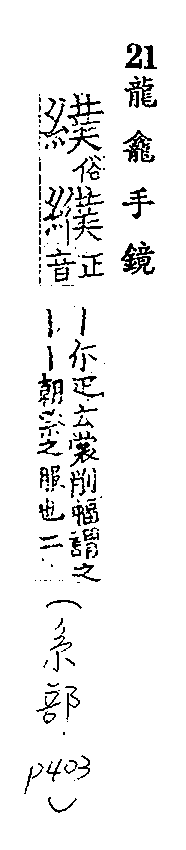 21龍龕手鏡
纀俗纀正音
卜尒疋云裳削幅謂之
｜｜朝祭之服也二
(糸部.
p403)